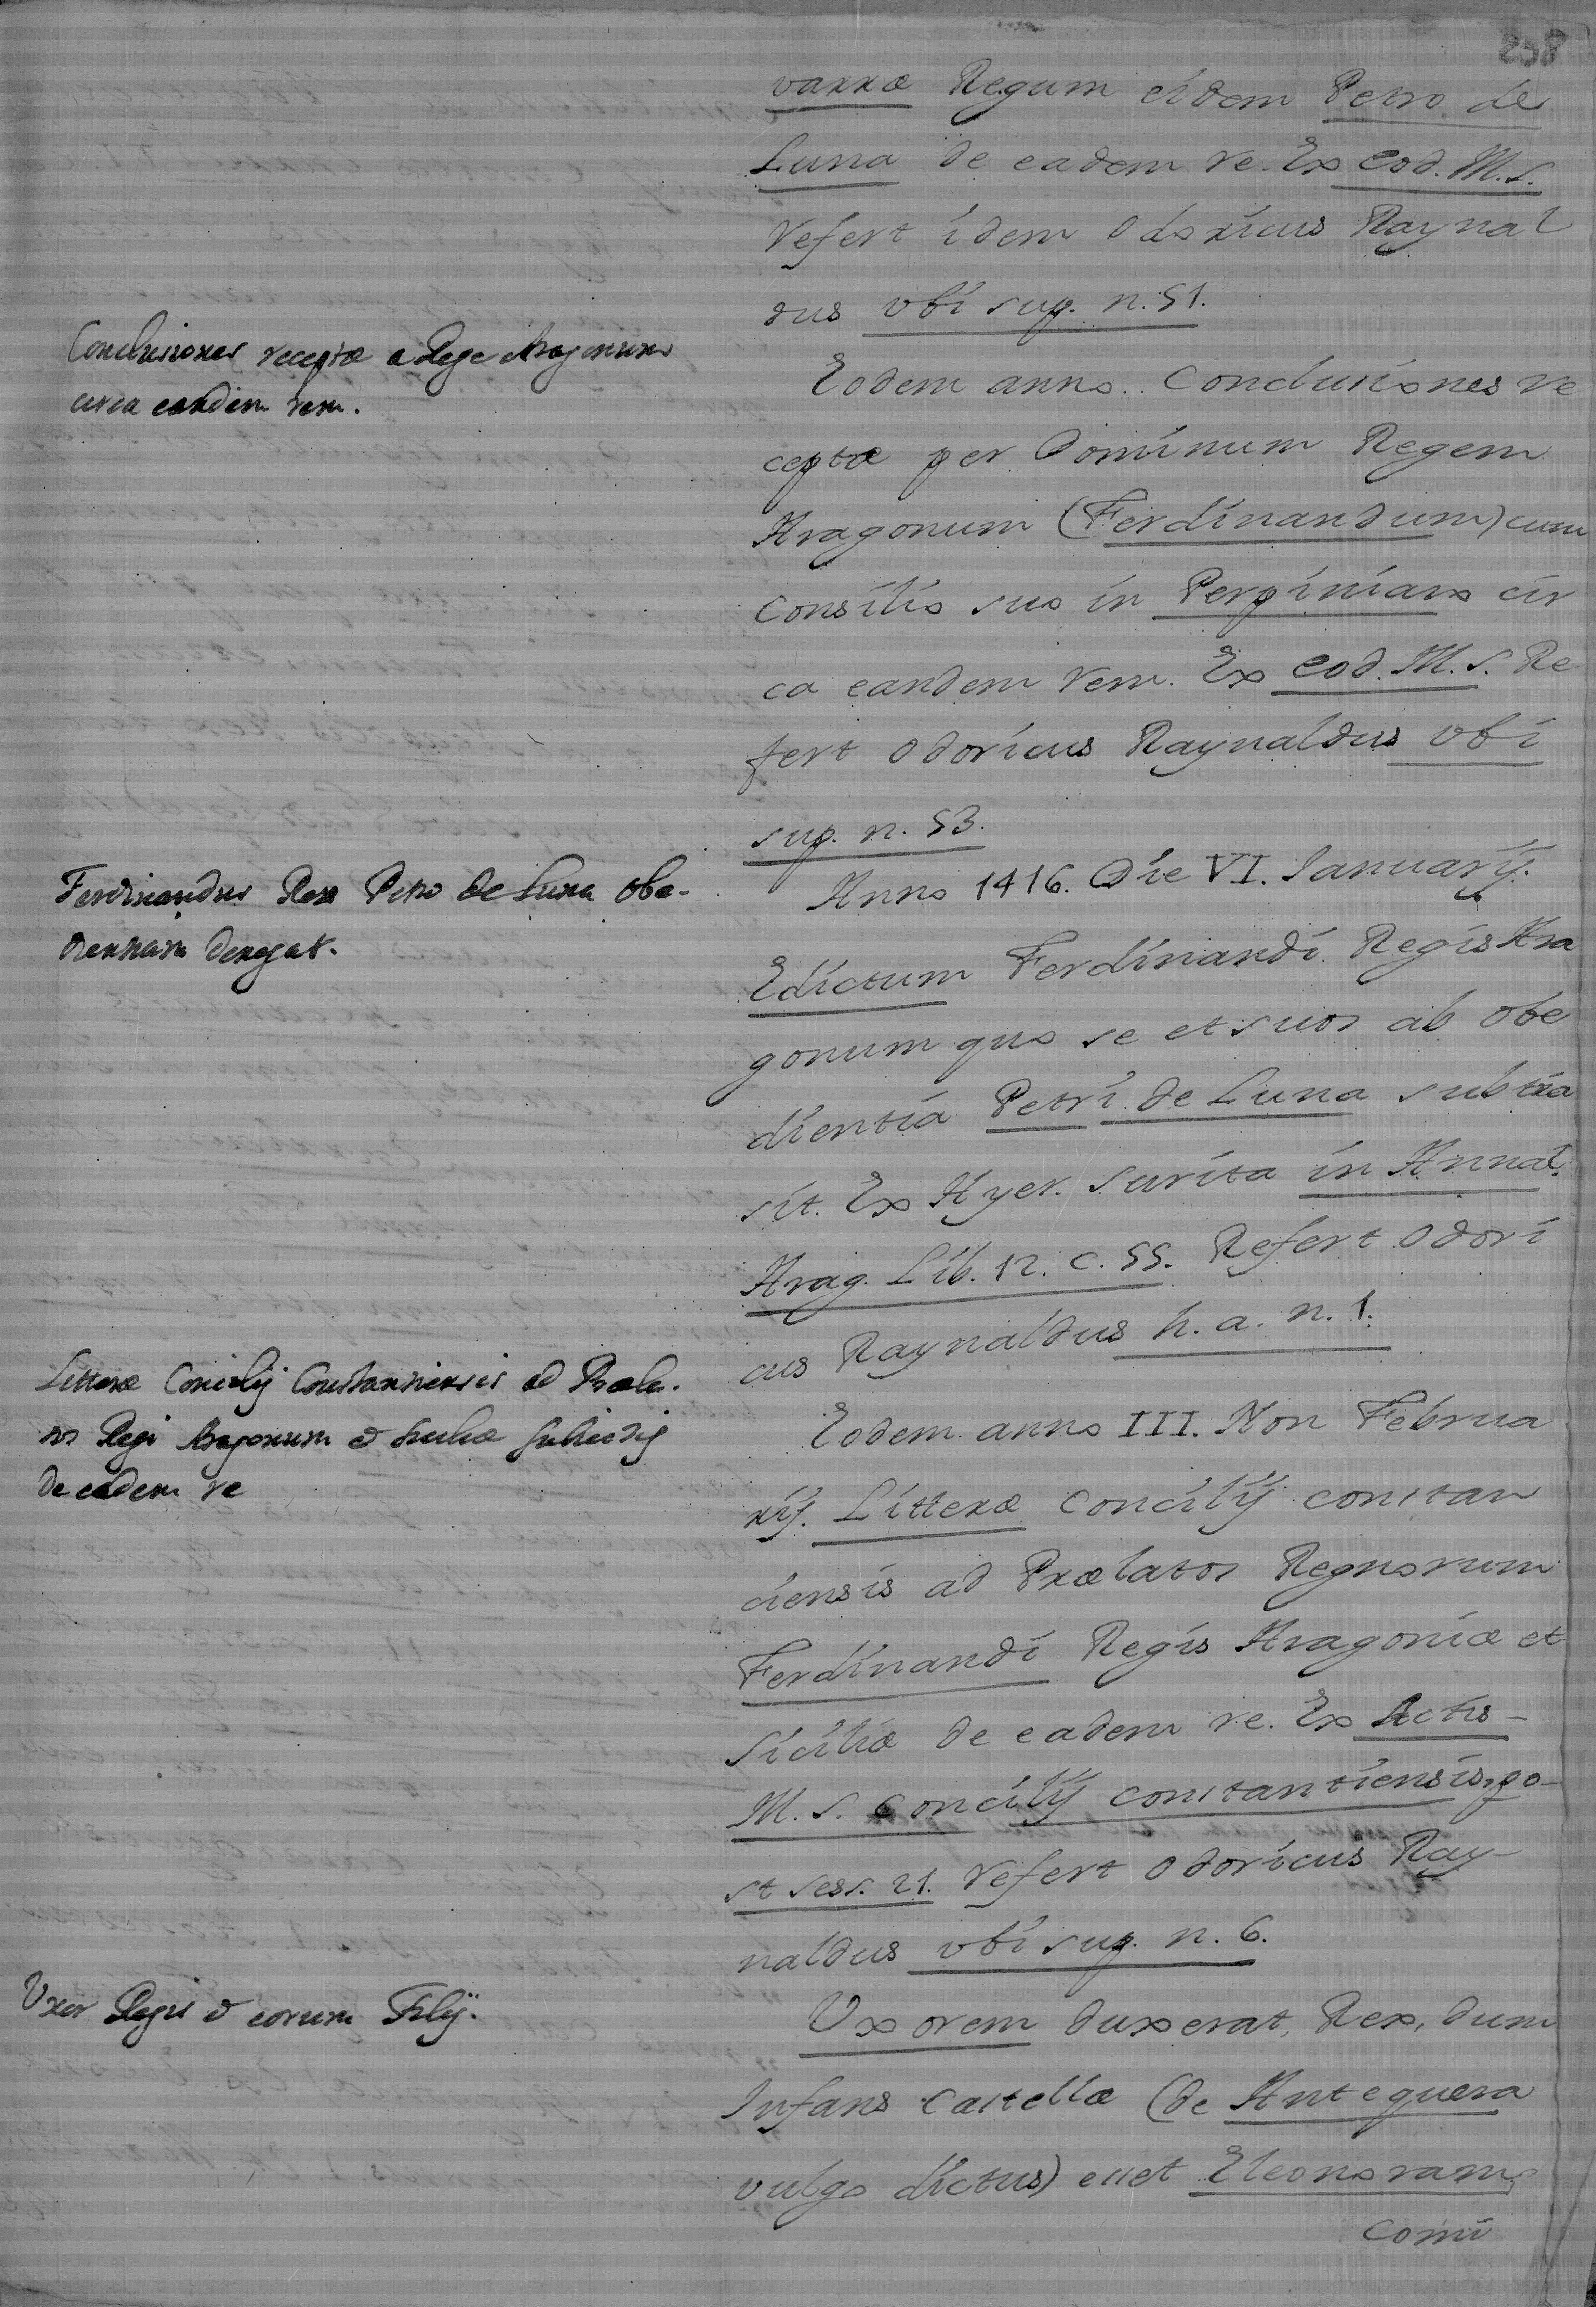 208
varræ Regum eidem Petro de
Luna de eadem re. Ex Cod. M.S.
refert idem Odoricus Raynal
dus ubi sup. n. 51.
Conclusiones receptæ a Rege Aragonum
circa eandem rem.
Eodem anno.. Conclusiones re
ceptæ per Dominum Regem
Aragonum (Ferdinandum) cum
Consilio suo in Perpiniano cir
ca eandem rem. Ex Cod. M.S. Re
fert Odoricus Raynaldus vbi
sup. n. 53.
Ferdinandus Rex Petro de Luna obe-
dientiam denegat.
Anno 1416. Die VI. Januarÿ.
Edictum Ferdinandi Regis Ara
gonum quo se et suos ab obe
dientia Petri de Luna subtra
sit. Ex Hyer. Surita in Annal.
Arag. Lib. 12. c. 55. Refert Odori
cus Raynaldus h. a. n. 1.
Litteræ Concilÿ Constanciensis ad Præla-
tos Regi Aragonum & Siciliæ subiectis
de eadem re
Eodem anno III. Non Februa
rÿ. Litteræ Concilÿ Constan
ciensis ad Prælatos Regnorum
Ferdinandi Regis Aragoniæ et
Siciliæ de eadem re. Ex Actis -
M.S. Concilÿ Constantiensis, po-
st sess. 21. refert Odoricus Ray-
naldus vbi sup. n. 6.
Vxor Regis & eorum Filÿ.
Vxorem duxerat, Rex, dum
Infans Castellæ (de Antequera
vulgo dictus) esset Eleonoram,
Comi